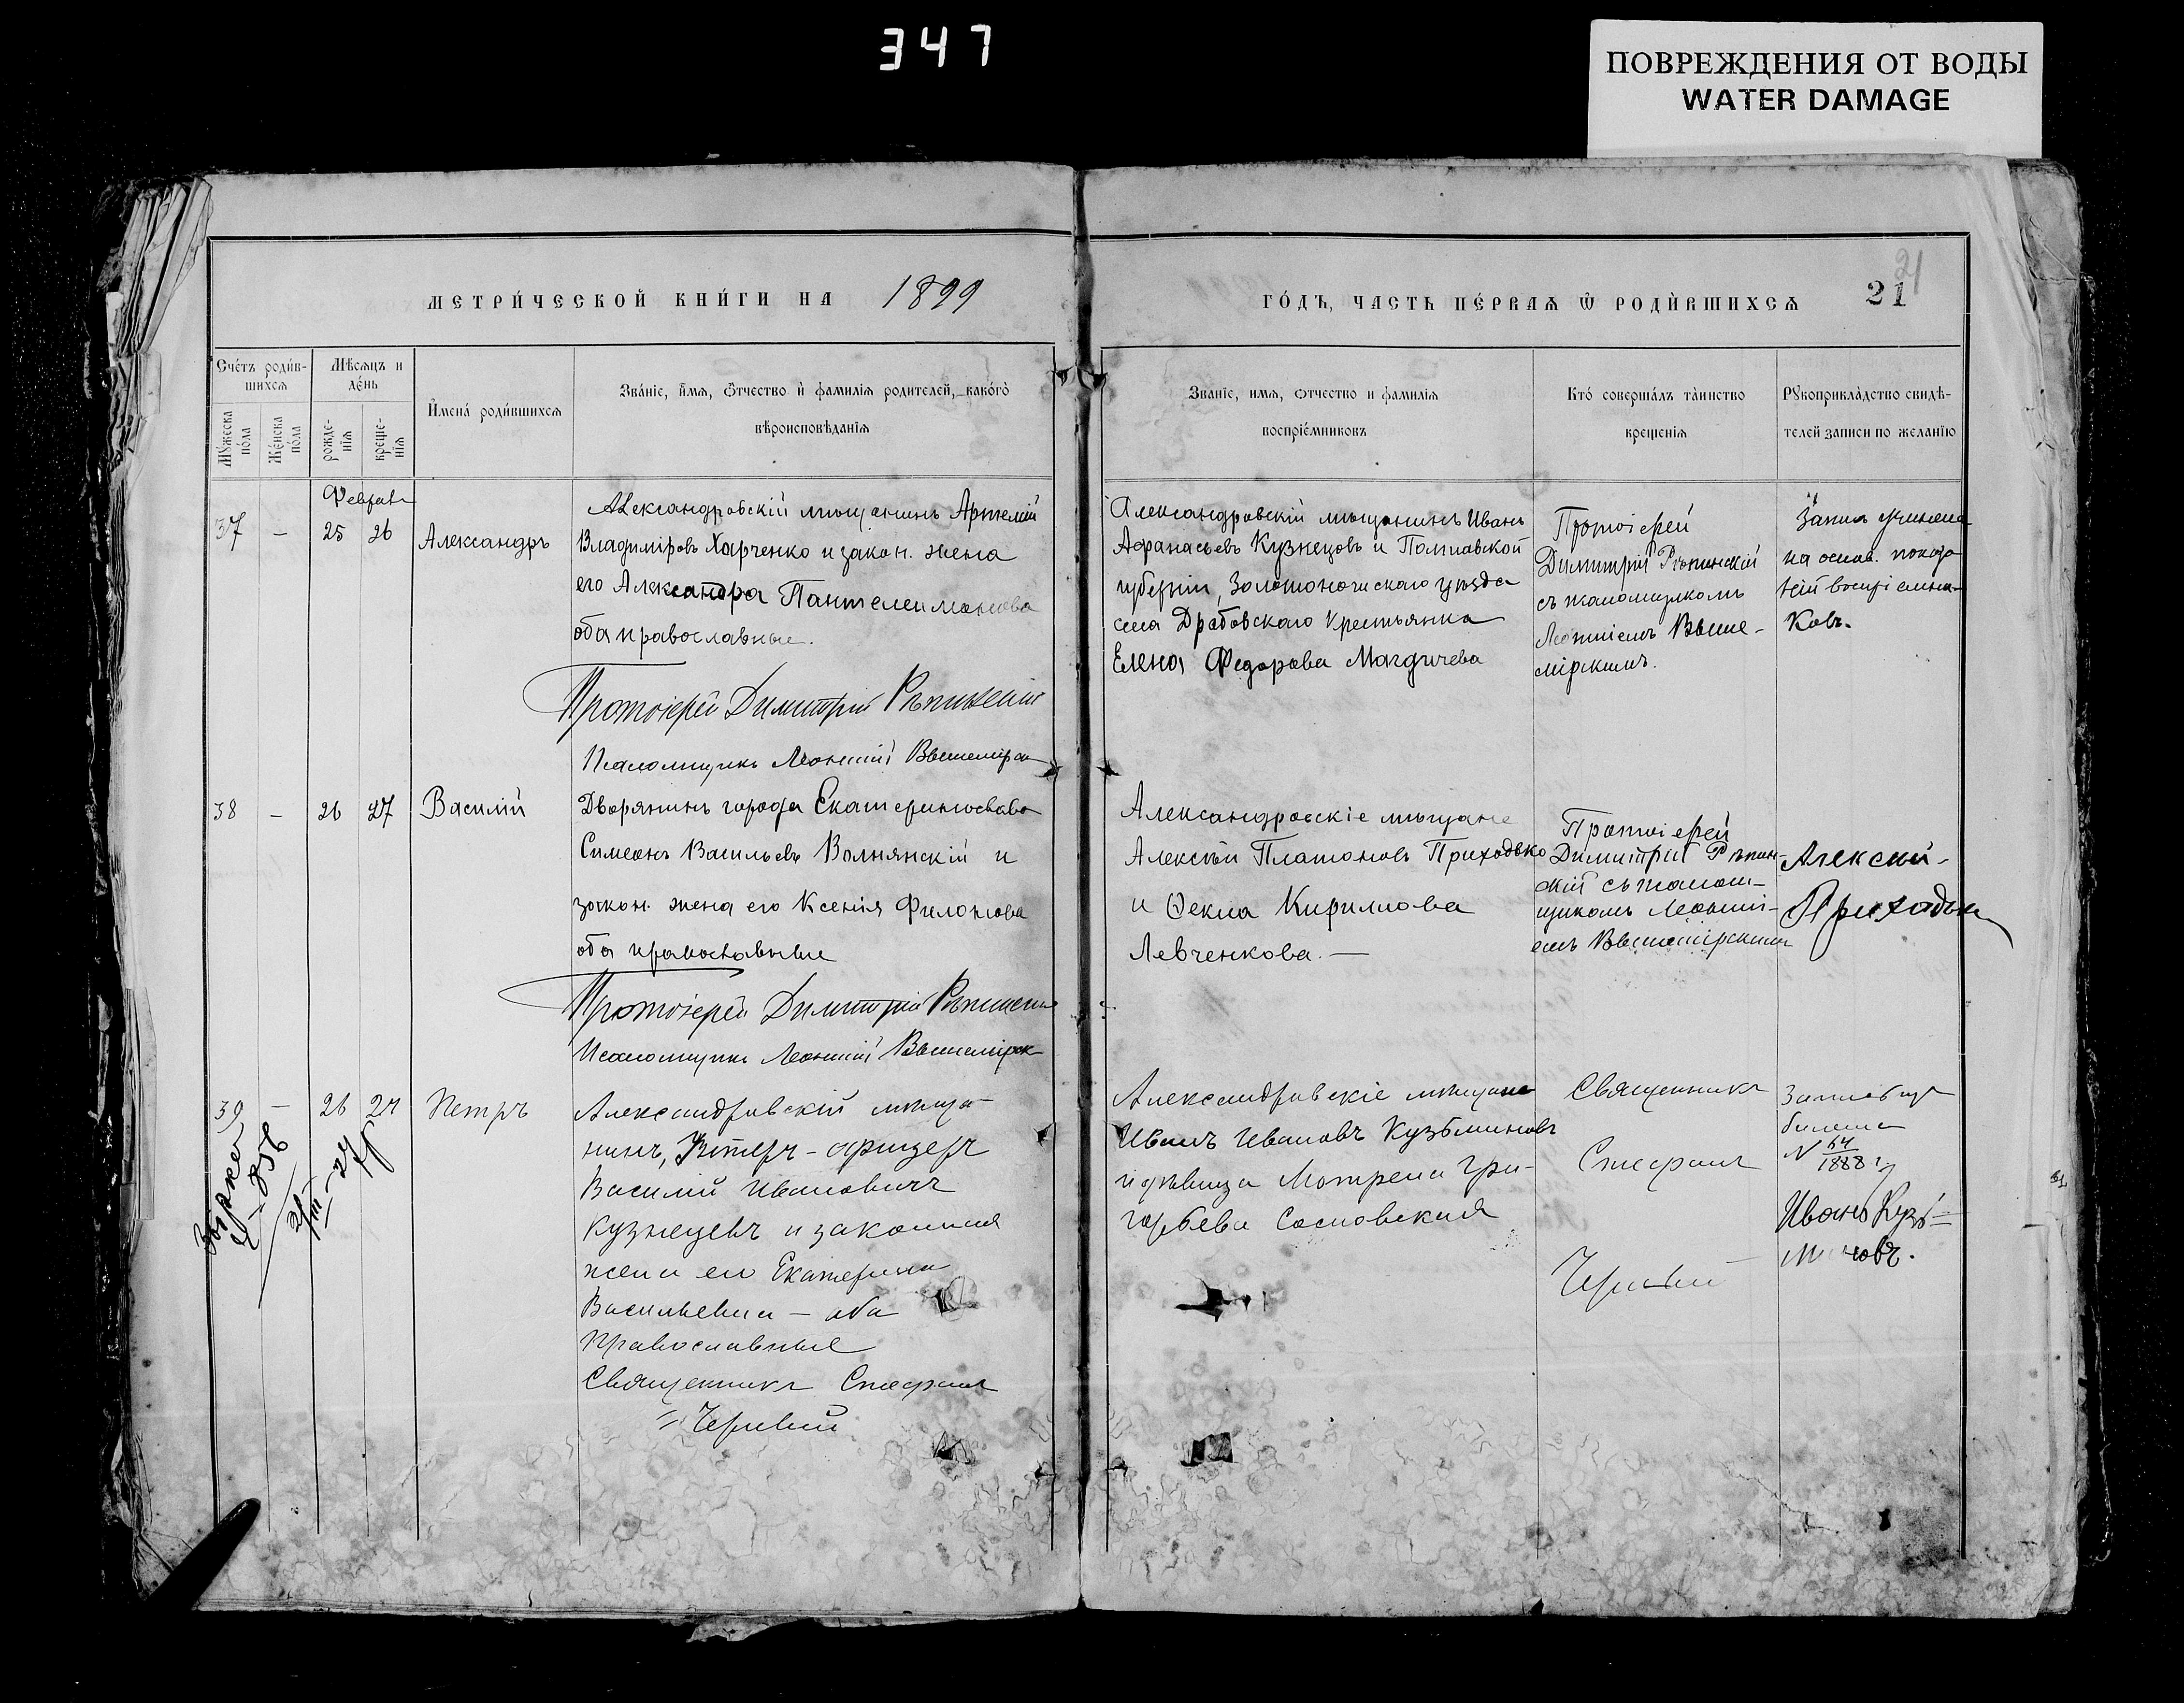 347
ПОВРЕЖДЕНИЯ ОТ ВОДЫ
WATER DAMAGE
МЕТРИ́ЧЕСКОЙ КНИ́ГИ НА 1899
ГО́ДЪ, ЧАСТЬ ПЕ́РВАѦ Ѿ РОДИ́ВШИХСѦ
21
21
Сче́тъ роди́в-
шихсѧ
Мѣ́сѧцъ и
де́нь
Мꙋ́жеска
по́ла
Же́нска
по́ла
рожде-
нїѧ
креще-
нїѧ
И҆мена́ роди́вшихсѧ
Зва́нїе, и҆́мѧ, ѻ҆́тчество и҆ фамилїѧ родителей, какогѡ
вѣроисповѣданїѧ
Званїе, имѧ, ѻтчество и фамилїѧ
воспрїе́мниковъ
Кто́ соверша́лъ та́инство
крещенїѧ
Рꙋкоприкла́дство свидѣ-
телей записи по желанїю
37 - 25 26 Александръ
Александровскій мѣщанинъ Артемій
Владиміровъ Харченко и закон. жена
его Александра Пантелеимонова
оба православные.
Протоіерей Димитрій Рѣпинскій
Псаломщикъ Леонтій
Александровскій мѣщанинъ Иванъ
Афанасьевъ Кузнецовъ и Полтавской
губерніи, Золотоношскаго уѣзда
села Драбовскаго крестьянка
Елена Федорова
Протоіерей
Димитрій Рѣпинскій
съ псаломщикомъ
Леонтіемъ Выше-
мірскимъ.
на основ. показа
ній воспріемни-
ковъ.
38 - 26 27 Василій
Дворянинъ города Екатеринослава
Симеонъ Васильевъ Волнянскій и
закон. жена его Ксенія Филонова
оба православные
Протоіерей Димитрій Рѣпинскій
Псаломщикъ Леонтій
Александровскіе мѣщане
Алексѣй Платоновъ Приходько
и Ѳекла Кирилова
Левченкова. —
Протоіерей
Димитрій Рѣпин-
скій съ псалом-
щикомъ Леонті-
емъ Вышемірскимъ
Алексей
Приходько
39 - 26 27 Петръ
Александровскій мѣща-
нинъ, Унтеръ-офицеръ
Василій Ивановичъ
Кузнецовъ и законная
жена его Екатерина
Васильевна — оба
православные
Священникъ Стефанъ
Александровскіе мѣщане
Иванъ Ивановъ Кузьминовъ
и дѣвица Матрена Гри-
горьева Сосновская
Священникъ
Стефанъ
билета
N 64
1888 г
Иванъ Кузь=
миновъ.